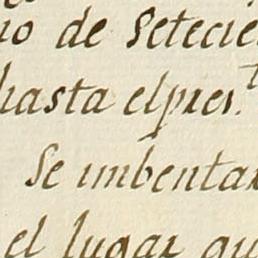 no de Setecie
hasta el pres.t
Se imbentar
el lugar qu